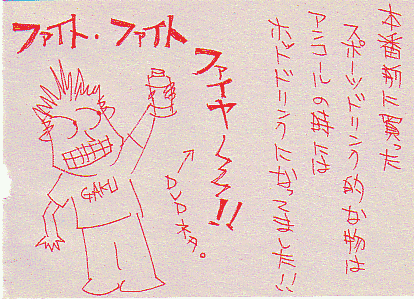 本番前に買った
スポーツドリンク的な物は
アンコールの時には
ホットドリンクになってました!!
ファイト・ファイト
ファイヤ〜〜〜!!
DVDネタ。
GAKU